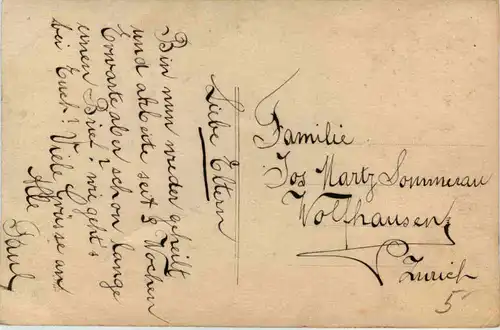 Liebe Eltern
Bin nun wieder geheilt
und arbeite seit 3 Wochen
Erwarte aber schon lange
einen Brief? wie geht's
bei Euch? Viele Grüsse an
Alle
Paul
Familie
Jos Martz Sommerau
Wolfhausen
Zürich
5